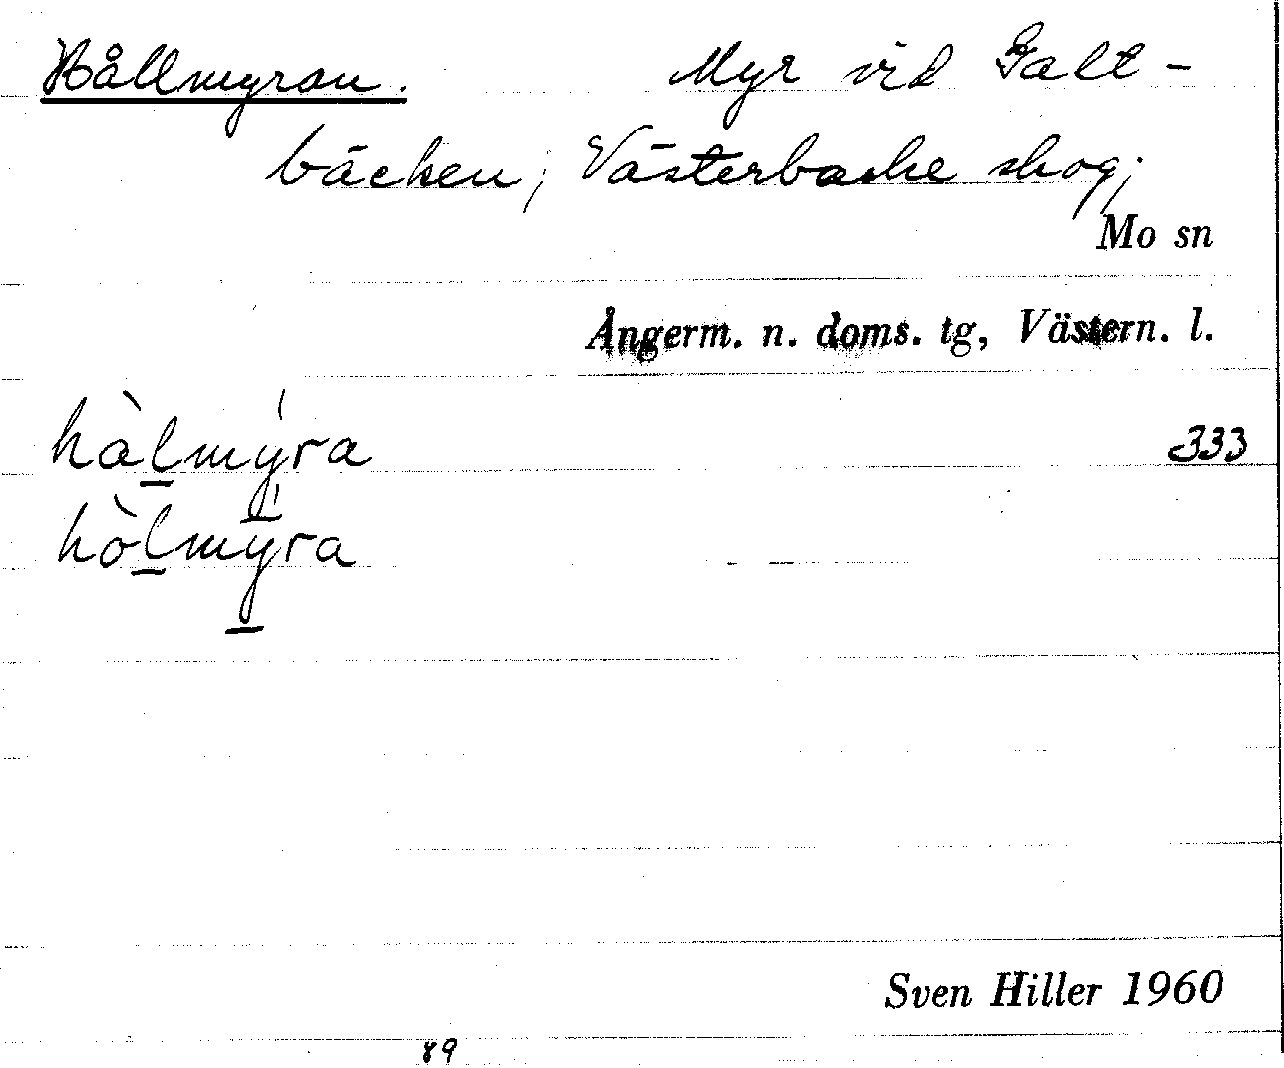 Hållmyran. Myr vid Galt-
bäcken; Västerbacke skog;
Mo sn
Ångerm. n. doms. tg, Västern. l.
hàl̲mý̲ra 333
hòl̲mý̲ra
Sven Hiller 1960
89